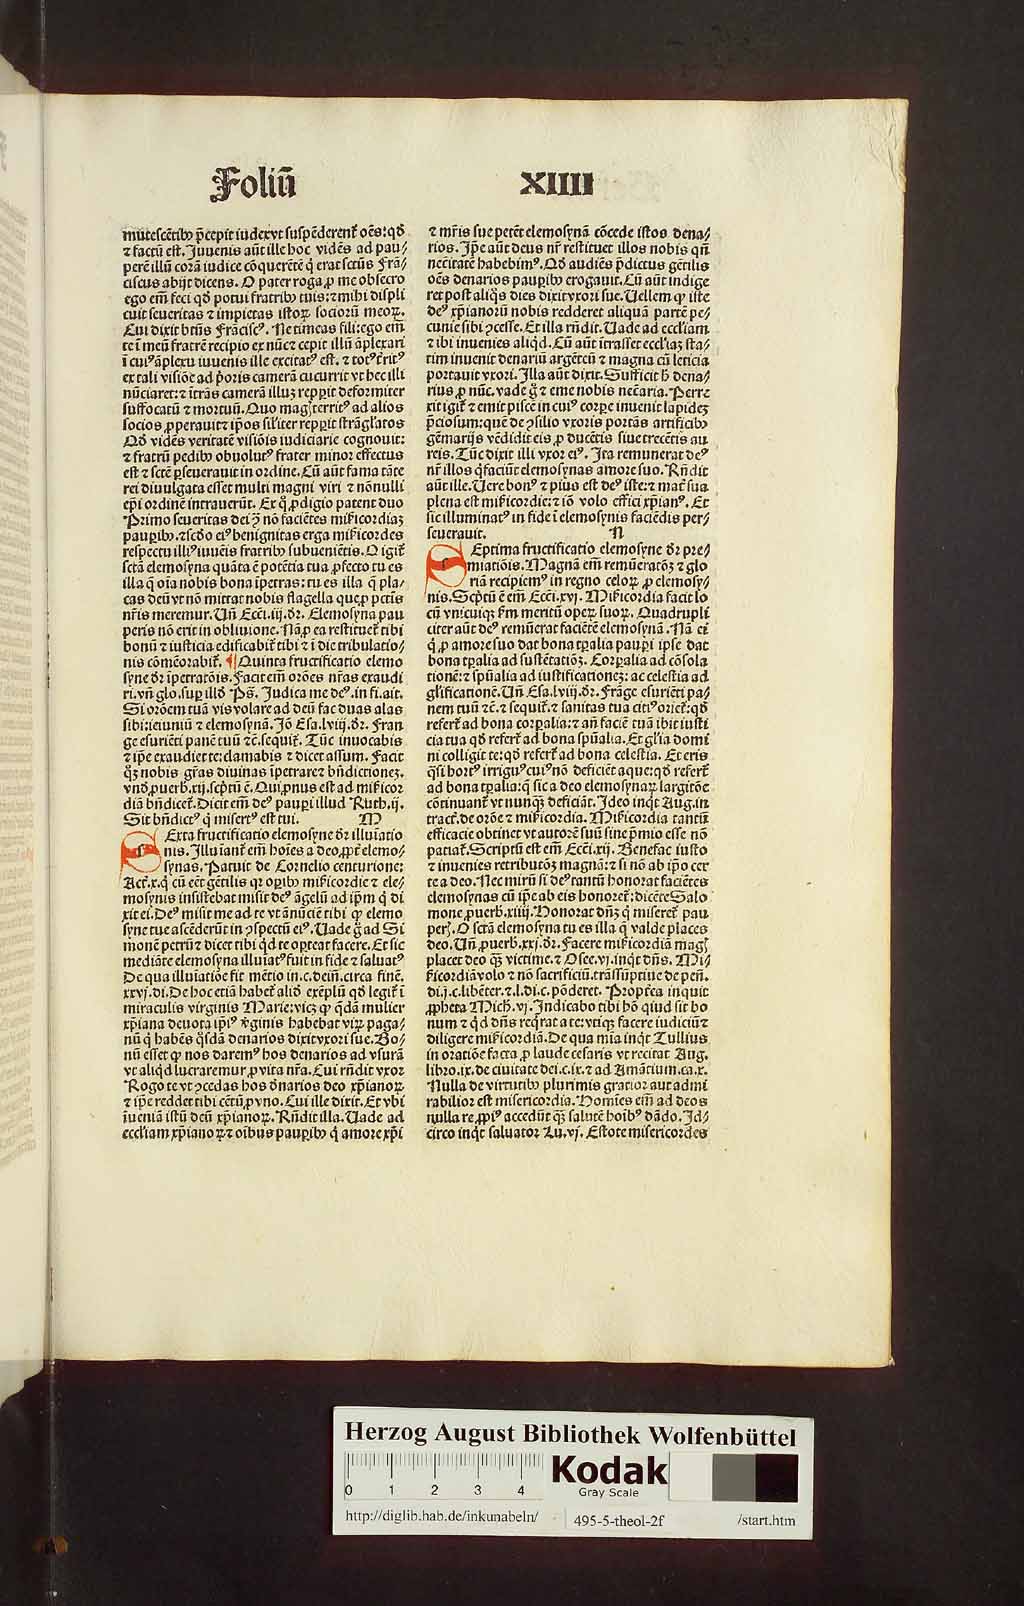 Foliū XIIII
mutescētibꝰ p̄cepit iudex vt suspēderent͛ oēs: qd̛
⁊ factū est. Juuenis aūt ille hoc vidēs ad pau⸗
perē illū corā iudice cōquerētē q̄ erat sctūs Frā⸗
ciscus abijt dicens. O pater roga ꝓ me obsecro
ego em̄ feci qd̛ potui fratribꝰ tuis: ⁊ mihi displi
cuit seueritas ⁊ impietas istoꝝ socioruꝫ meoꝝ.
Cui dixit btūs Frāciscꝰ. Ne timeas fili: ego em̄
te ī meū fratrē recipio ex nūc ⁊ cepit illū āplexari
ī cuiꝰ āplexu iuuenis ille excitatꝰ est. ⁊ totꝰ t͛ritꝰ
ex tali visiōe ad p̄oris camerā cucurrit vt hec illi
nūciaret: ⁊ ītrās camerā illuꝫ repꝑit deformiter
suffocatū ⁊ mortuū. Quo magꝭ territꝰ ad alios
socios ꝓperauit ⁊ ip̄os sil̛iter repꝑit strāgl̛atos
Qd̛ vidēs veritatē visiōis iudiciarie cognouit:
⁊ fratrū pedibꝰ obuolutꝰ frater minor effectus
est ⁊ sctē ꝑseuerauit in ordine. Cū aūt fama tāte
rei diuulgata esset multi magni viri ⁊ nōnulli
ep̄i ordinē intrauerūt. Ex q̊ ꝓdigio patent duo
Primo seueritas dei ꝯ̄ nō faciētes mi͛icordiaꝫ
pauꝑibꝰ. ⁊ scd̛o eiꝰ benignitas erga mi͛icordes
respectu illiꝰ iuuēis fratribꝰ subueniētis. O igit͛
sctā elemosyna quāta ē potētia tua ꝓfecto tu es
illa q̄ oīa nobis bona īpetras: tu es illa q̄ pla⸗
cas deū vt nō mittat nobis flagella que ꝓ pctīs
nr̄is meremur. Un̄ Ecci. iij. dr̄. Elemosyna pau
peris nō erit in obliuione. Nā ꝓ ea restituet͛ tibi
bonū ⁊ iusticia edificabit͛ tibi ⁊ ī die tribulatio⸗
nis cōmēorabit͛. ¶ Quinta fructificatio elemo
syne dr̄ īpetratōis. Facit em̄ orōes nr̄as exaudi
ri. vn̄ glo. suꝑ illd̛ Ps̄. Judica me deꝰ. in fi. ait.
Si orōem tuā vis volare ad deū fac duas alas
sibi: ieiuniū ⁊ elemosynā. Jō Esa. lviij. dr̄. Fran
ge esuriēti panē tuū ⁊c̄. sequit͛. Tūc inuocabis
⁊ ip̄e exaudiet te: clamabis ⁊ dicet assum. Facit
q̊ꝫ nobis gr̄as diuinas īpetrare ⁊ bn̄dictioneꝫ.
vnd̛ ꝓuerb. xij. scp̄tū ē. Qui pnus est ad mi͛icor
diā bn̄dicet͛. Dicit em̄ deꝰ pauꝑi illud Ruth. ij.
Sit bn̄dictꝰ q̄ misertꝰ est tui. M
Sexta fructificatio elemosyne dr̄ illuīatio
nis. Illuīant͛ em̄ hoīes a deo ꝓpt͛ elemo⸗
synas. Patuit de Cornelio centurione:
Act͛. x. q̄ cū eēt gētilis qꝛ oꝑibꝰ mi͛icordie ⁊ ele⸗
mosynis insistebat misit deꝰ āgelū ad ip̄m q̄ di
xit ei. Deꝰ misit me ad te vt ānūciē tibi ꝙ elemo
syne tue ascēderūt in ꝯspectū eiꝰ. Uade g̊ ad Si
monē petrū ⁊ dicet tibi qd̛ te oꝑteat facere. Et sic
mediāte elemosyna illuīatꝰ fuit in fide ⁊ saluatꝰ
De qua illuīatiōe fit mētio in. c. deīn̄. circa finē.
xxvj. di. De hoc etiā habet͛ aliđ exēplū qd̛ legit͛ ī
miraculis virginis Marie: vicꝫ ꝙ q̄dā mulier
xp̄iana deuota ip̄iꝰ v͛ginis habebat viꝝ paga⸗
nū q̄ habēs q̊sdā denarios dixit vxori sue. Bo⸗
nū esset ꝙ nos daremꝰ hos denarios ad vsurā
vt aliqd̛ lucraremur ꝓ vita nr̄a. Cui rn̄dit vxor
Rogo te vt ꝯcedas hos d̛narios deo xp̄ianoꝝ
⁊ ip̄e reddet tibi cētū ꝓ vno. Cui ille dixit. Et vbi
īueniā istū deū xp̄ianoꝝ. Rn̄dit illa. Uade ad
eccl̛iam xp̄ianoꝝ ⁊ oībus pauꝑibꝰ q̄ amore xp̄i
⁊ mr̄is sue petēt elemosynā cōcede istos dena⸗
rios. Ip̄e aūt deus nr̄ restituet illos nobis qn̄
necc̄itatē habebimꝰ. Qd̛ audiēs p̄dictus gētilis
oēs denarios pauꝑibꝰ erogauit. Cū aūt indige
ret post aliq̊s dies dixit vxori sue. Uellem ꝙ iste
deꝰ xp̄ianorū nobis redderet aliquā partē pe⸗
cunie sibi ꝯcesse. Et illa rn̄dit. Uade ad eccl̛iam
⁊ ibi inuenies aliqd̛. Cū aūt ītrasset eccl̛iaꝫ sta⸗
tim inuenit denariū argētcū ⁊ magna cū leticia
portauit vxori. Illa aūt dixit. Sufficit h̄ dena⸗
rius ꝓ nūc. vade g̊ ⁊ eme nobis nec̄aria. Perre
xit igit͛ ⁊ emit piscē in cuiꝰ corꝑe inuenit lapideꝫ
p̄ciosum: quē de ꝯsilio vxoris portās artificibꝰ
gēmarijs vēdidit eis ꝓ ducētis siue trecētis au
reis. Tūc dixit illi vxor eiꝰ. Ita remunerat deꝰ
nr̄ illos q̄ faciūt elemosynas amore suo. Rn̄dit
aūt ille. Uere bonꝰ ⁊ piꝰ est deꝰ iste: ⁊ mat͛ sua
plena est mi͛icordie: ⁊ iō volo effici xp̄ianꝰ. Et
sic illuminatꝰ in fide ī elemosynis faciēdis per⸗
seuerauit. N
Septima fructificatio elemosyne dr̄ pre⸗
miatiōis. Magnā em̄ remūeratōꝫ ⁊ glo
riā recipiemꝰ in regno celoꝝ ꝓ elemosy⸗
nis. Scp̄tū ē em̄ Ecci. xvj. Mi͛icordia facit lo
cū vnicuiqꝫ fm meritū operꝫ suoꝝ. Quadrupli
citer aūt deꝰ remūerat faciētē elemosynā. Nā ei
q̄ ꝓ amore suo dat bona tꝑalia pauꝑi ip̄se dat
bona tꝑalia ad sustētatiōꝫ. Corꝑalia ad cōsola
tionē: ⁊ spūalia ad iustificationeꝫ: ac celestia ad
gl̛ificationē. Un̄ Esa. lviij. dr̄. Frāge esuriēti pa⸗
nem tuū ⁊c̄. ⁊ sequit͛. ⁊ sanitas tua citiꝰ oriet͛: qd̛
refert͛ ad bona corꝑalia: ⁊ an̄ faciē tuā ibit iusti
cia tua qd̛ refert͛ ad bona spūalia. Et gl̛ia domi
ni colligit te: qd̛ refert͛ ad bona celestia. Et eris
q̄si hortꝰ irriguꝰ cui nō deficiēt aque: qd̛ refert͛
ad bona tꝑalia: q̄ sic a deo elemosynaꝝ largitōe
cōtinuant͛ vt nunqꝫ deficiāt. Ideo inqt̛ Aug. in
tract͛. de orōe ⁊ mi͛icordia. Mi͛icordia tantū
efficacie obtinet vt autorē suū sine p̄mio esse nō
patiat͛. Scriptū est em̄ Ecci. xij. Benefac iusto
⁊ inuenies retributōꝫ magnā: ⁊ si nō ab ip̄o cer
te a deo. Nec mirū si deꝰ tantū honorat faciētes
elemosynas cū ip̄e ab eis honoret͛: dicēte Salo
mone ꝓuerb. xiiij. Honorat dn̄ꝫ q̄ miseret͛ pau
perꝭ. O sctā elemosyna tu es illa q̄ valde places
deo. Un̄ ꝓuerb. xxj. dr̄. Facere mi͛icordiā magꝭ
placet deo qꝫ victime. ⁊ Osee. vj. inqt̛ dn̄s. Mi⸗
͛icordiā volo ⁊ nō sacrificiū. trāssūptiue de pen̄.
di. j. c. libēter. ⁊. l. di. c. pōderet. Propt͛ea inquit
ꝓpheta Mich. vj. Indicabo tibi hō qiud sit bo
num ⁊ qd̛ dn̄s reqͥrat a te: vtiqꝫ facere iudiciū ⁊
diligere mi͛icordiā. De qua mia inqt̛ Tullius
in oratiōe facta ꝓ laude cesaris vt recitat Aug.
libro. ix. de ciuitate dei. c. ix. ⁊ ad Amātium. ca. x.
Nulla de virtutibꝰ plurimis gratior aut admi
rabilior est misericordia. Homīes em̄ ad deos
nulla re ꝓpiꝰ accedūt qꝫ salutē hoībꝰ dādo. Id⸗
circo inqt̛ saluator Lu. vj. Estote misericordes
Herzog August Bibliothek Wolfenbüttel
0 1 2 3 4
Kodak
Gray Scale
http://diglib.hab.de/inkunabeln/ 495-5-theol-2f /start.htm